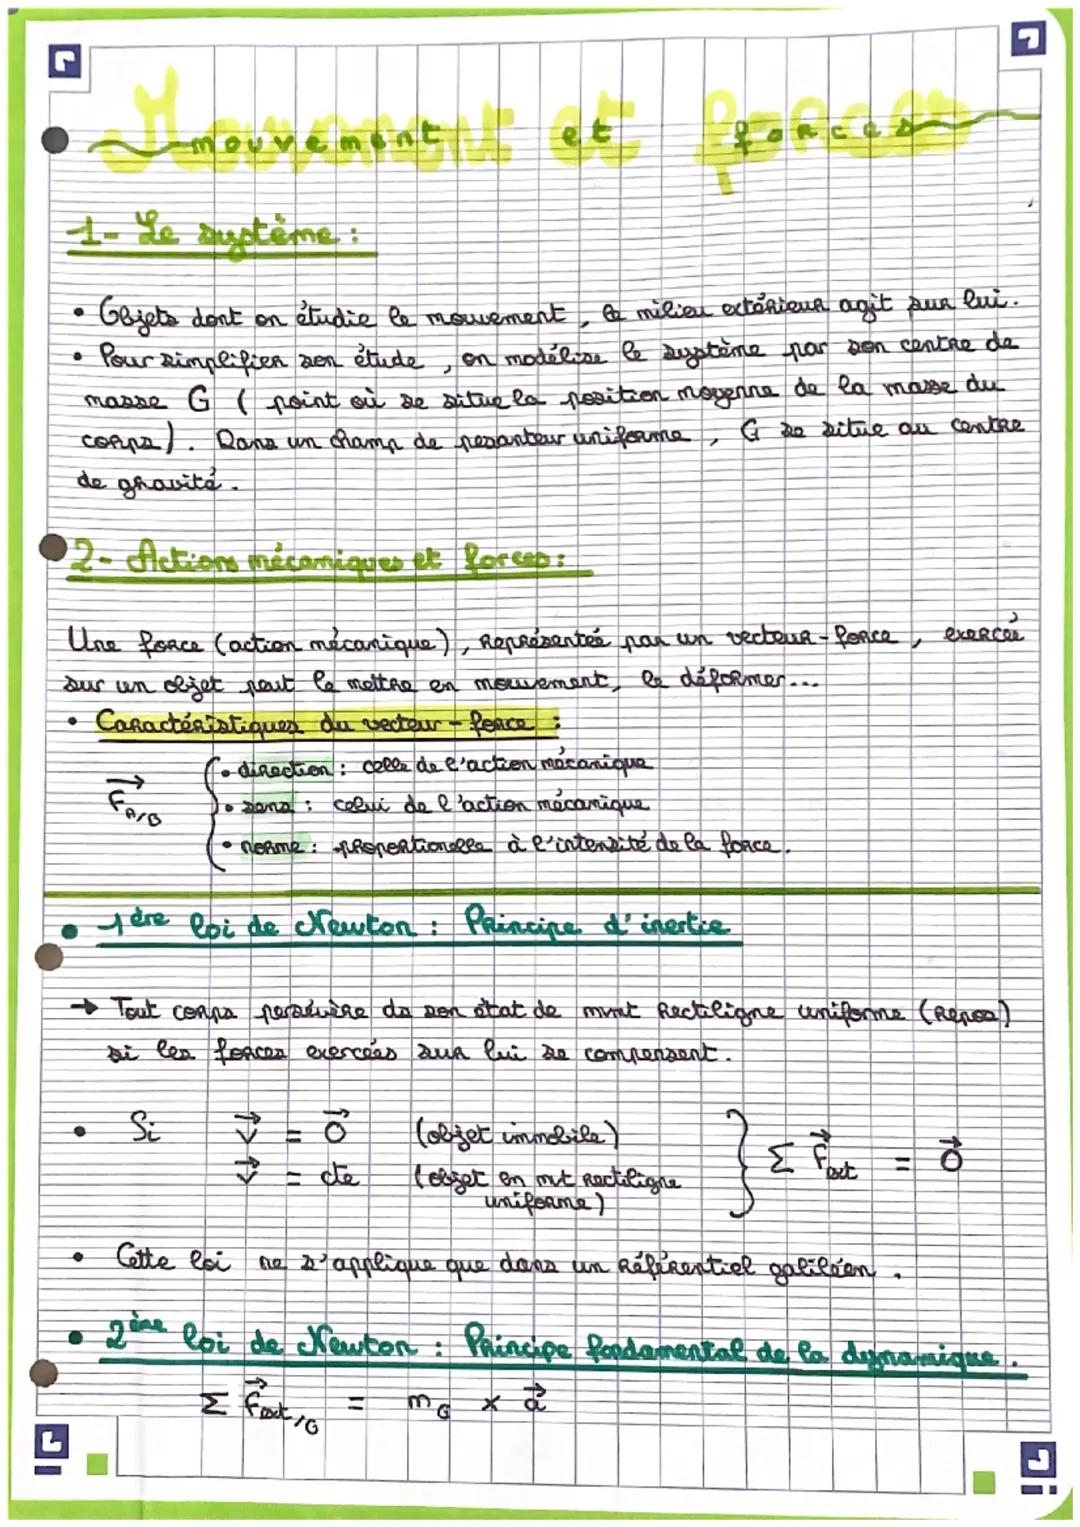 Mouvement et forces
mouvement et forces
1- Le système :
• Objets dont on étudie le mouvement, le milieu extérieur agit sur lui.
• Pour simplifier son étude, on modélise le système par son centre de
masse G ( point où se situe la position moyenne de la masse du
corps). Dans un champ de pesanteur uniforme, G se situe au centre
de gravité.
2- Actions mécaniques et forces :
Une force (action mécanique), représentée par un vecteur-force, exercée
sur un objet peut le mettre en mouvement, le déformer...
• Caractéristiques du vecteur-force :
• direction : celle de l'action mécanique
F⃗ A/B
• sens : celui de l'action mécanique
• norme : proportionelle à l'intensité de la force.
• 1ère loi de Newton : Principe d'inertie
→ Tout corps persévère ds son état de mvnt rectiligne uniforme (repos)
si les forces exercées sur lui se compensent.
• Si v⃗ = 0⃗ (objet immobile)
v⃗ = cte (objet en mvt rectiligne
uniforme)
} Σ F⃗ext = 0⃗
• Cette loi ne s'applique que dans un référentiel galiléen.
• 2ème loi de Newton : Principe fondamental de la dynamique.
Σ F⃗ext/G = mG × a⃗